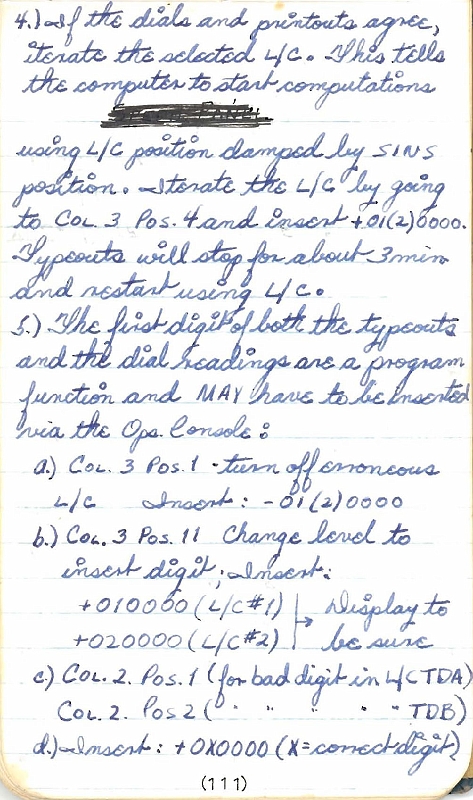 4.) If the dials and printouts agree,
iterate the selected L/C. This tells
the computer to start computations
using L/C position damped by SINS
position. Iterate the L/C by going
to Col. 3 Pos. 4 and insert +01(2)0000.
Typeouts will stop for about 3 min
and restart using L/C.
5.) The first digit of both the typeouts
and the dial readings are a program
function and MAY have to be inserted
via the Ops. Console:
a.) Col. 3 Pos. 1 - turn off erroneous
L/C Insert: -01(2)0000
b.) Col. 3 Pos. 11 Change level to
insert digit; Insert:
+010000 (L/C#1) Display to
+020000 (L/C#2) → be sure
c.) Col. 2. Pos. 1 (for bad digit in L/C TDA)
Col. 2. Pos 2 ( " " " " " TDB)
d.) Insert: +0X0000 (X=correct digit)
(111)